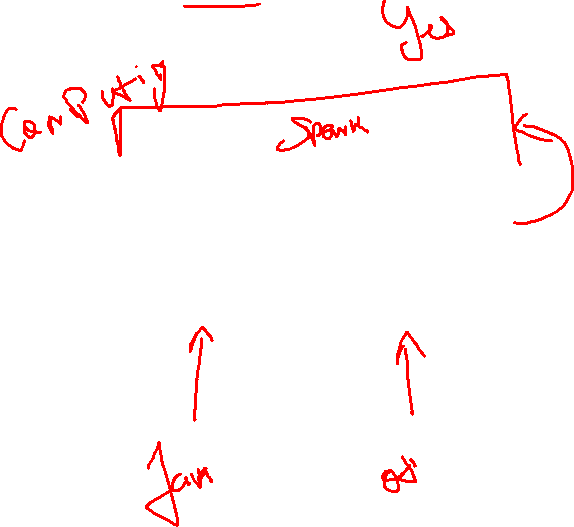 Yes
Computing
Spark
Java